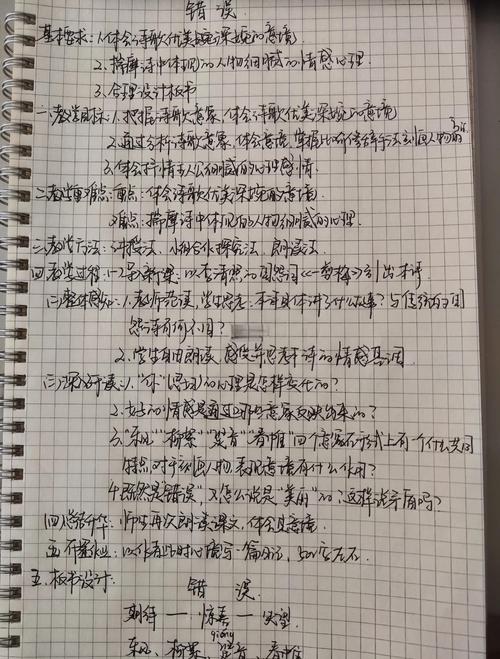 错误
基本要求：1.体会诗歌优美婉深婉的意境
2.揣摩诗中体现的人物细腻的情感心理
3.合理设计板书
一.教学目标：1.把握诗歌意象，体会诗歌优美深婉的意境
2.通过分析诗歌意象，体会意境，掌握比喻修辞手法刻画人物的
3.体会抒情主人公细腻的心理感情
二.教学重难点：重点：体会诗歌优美深婉的意境
难点：揣摩诗中体现的人物细腻的心理
三.教学方法：讲授法、小组合作探究法、朗读法
四.教学过程：(一)导入新课：以李清照的闺怨词《一剪梅》引出本诗
(二)整体感知：1.教师范读，学生思考：本诗具体讲了什么故事？与传统的闺
怨诗有何不同？
2.学生自由朗读，感受并思考本诗的情感基调
(三)深入研读：1."你"的心理是怎样变化的？
2.女主的情感是通过哪些意象反映出来的？
3."东风""柳絮""跫音""春帷"四个意象在形式上有一个什么共同
特点，对于刻画人物、表现意境有什么作用？
4.既然是"错误"，又怎么说是"美丽"的，这样说矛盾吗？
(四)总结升华：师生再次朗读课文，体会其意境
(五)布置作业：以作者此时心境写一篇日记，500字左右
五.板书设计：
错误
期待——惊喜——失望
qióng
东风、柳絮、跫音、春帷